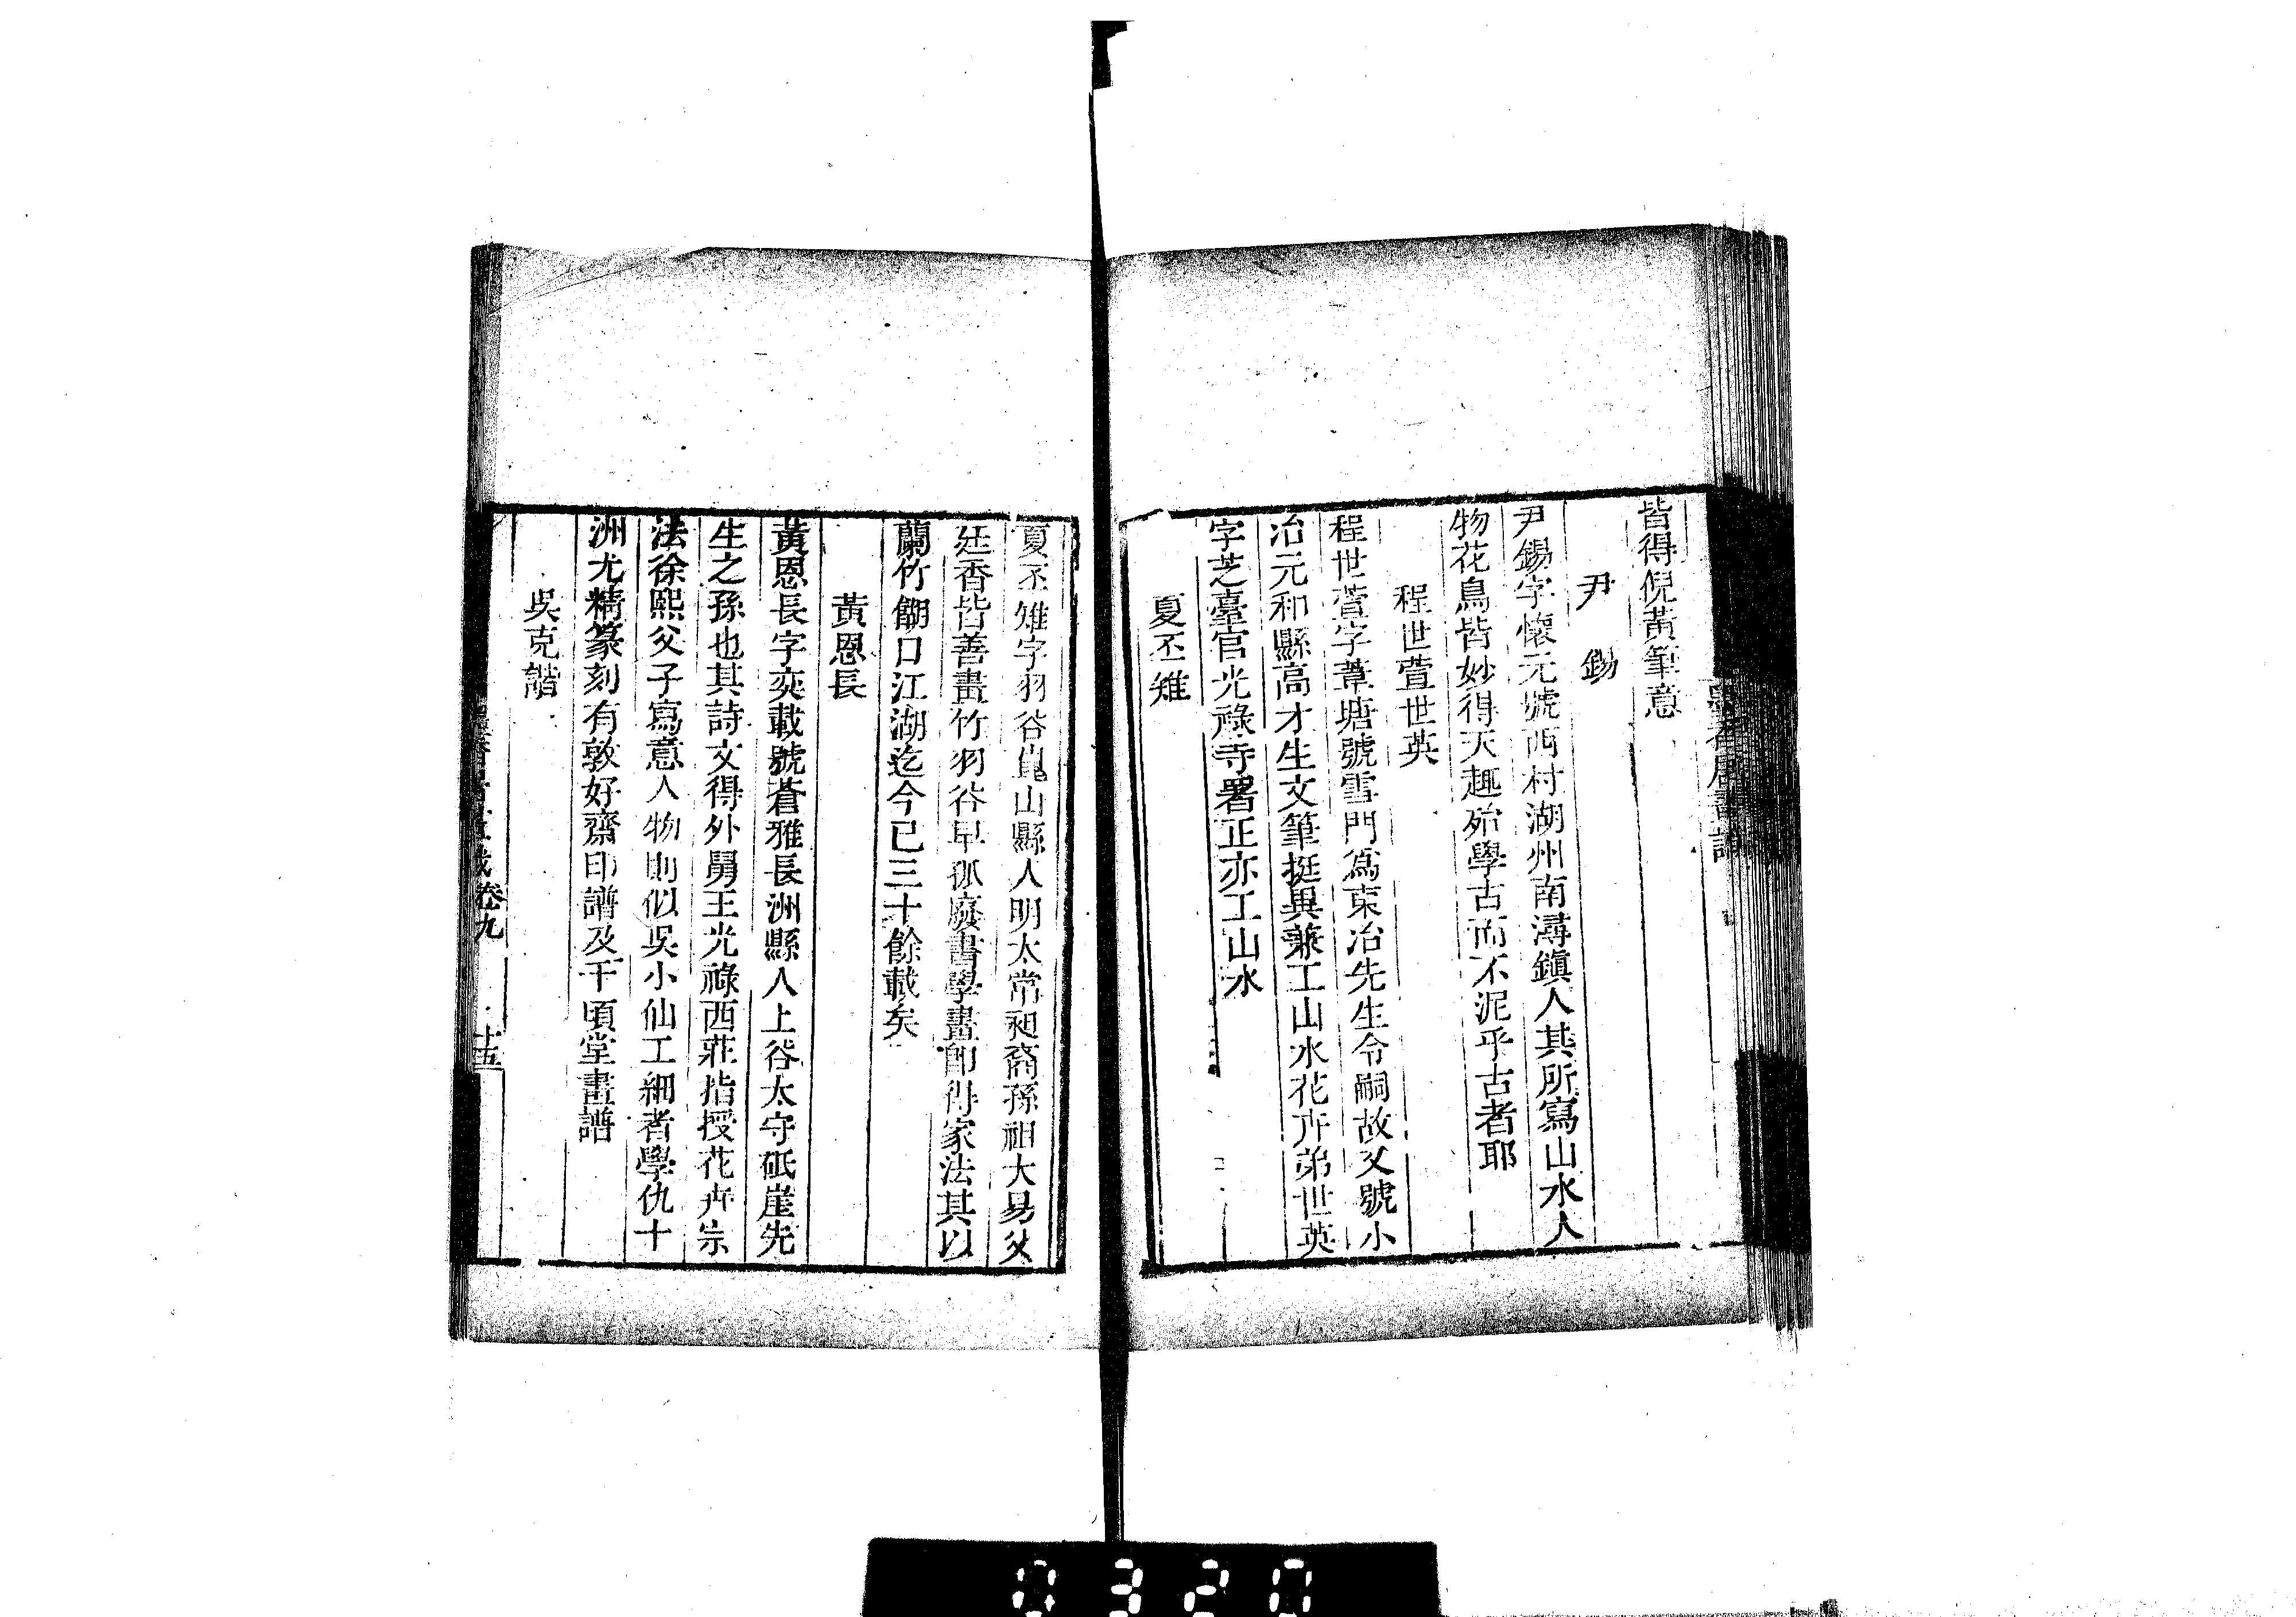 皆得倪黃筆意
尹錫
尹錫字懷元號西村湖州南潯鎭人其所寫山水人
物花鳥皆妙得天趣殆學古而不泥乎古者耶
程世萱世英
程世萱字葦塘號雪門爲東冶先生令嗣故又號小
冶元和縣高才生文筆挺異兼工山水花卉弟世英
字芝臺官光祿寺署正亦工山水
夏丕雉
夏丕雉字羽谷崑山縣人明太常昶裔孫祖大易父
廷香皆善畫竹羽谷早孤廢書學畫卽得家法其以
蘭竹餬口江湖迄今已三十餘載矣
黃恩長
黃恩長字奕載號蒼雅長洲縣人上谷太守砥崖先
生之孫也其詩文得外舅王光祿西莊指授花卉宗
法徐熙父子寫意人物則似吳小仙工細者學仇十
洲尤精篆刻有敦好齋印譜及千頃堂畫譜
吳克諧
卷九
十五
0320